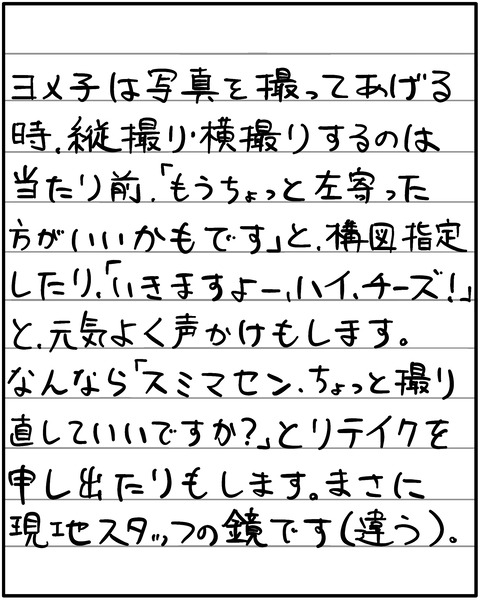 ヨメ子は写真を撮ってあげる
時、縦撮り・横撮りするのは
当たり前、「もうちょっと左寄った
方がいいかもです」と、構図指定
したり、「いきますよー、ハイ、チーズ!」
と、元気よく声かけもします。
なんなら「スミマセン、ちょっと撮り
直していいですか?」とリテイクを
申し出たりもします。まさに
現地スタッフの鏡です(違う)。